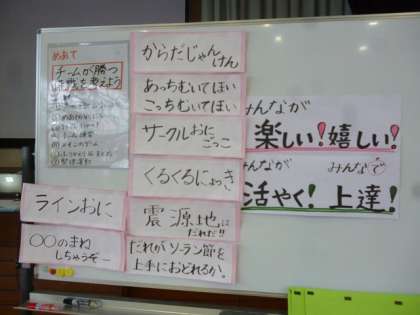 めあて
チームが勝つ
作戦を考えよう
からだじゃん
けん
あっちむいてほい
こっちむいてほい
サークルおに
ごっこ
くるくるにょっき
震源地は
だれだ!!
だれがソーラン節を
上手におどれるか。
ラインおに
○○のまね
しちゃうぞー
みんなが
楽しい!嬉しい!
みんなが
みんなで
活やく!上達!